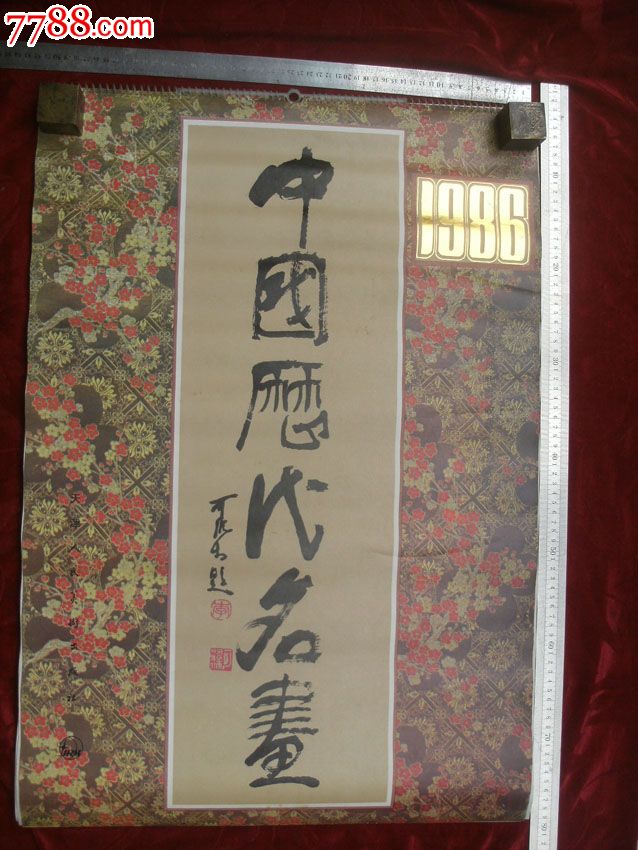 7788.com
1986
中國歷代名畫
可染題
天津人民美術出版社